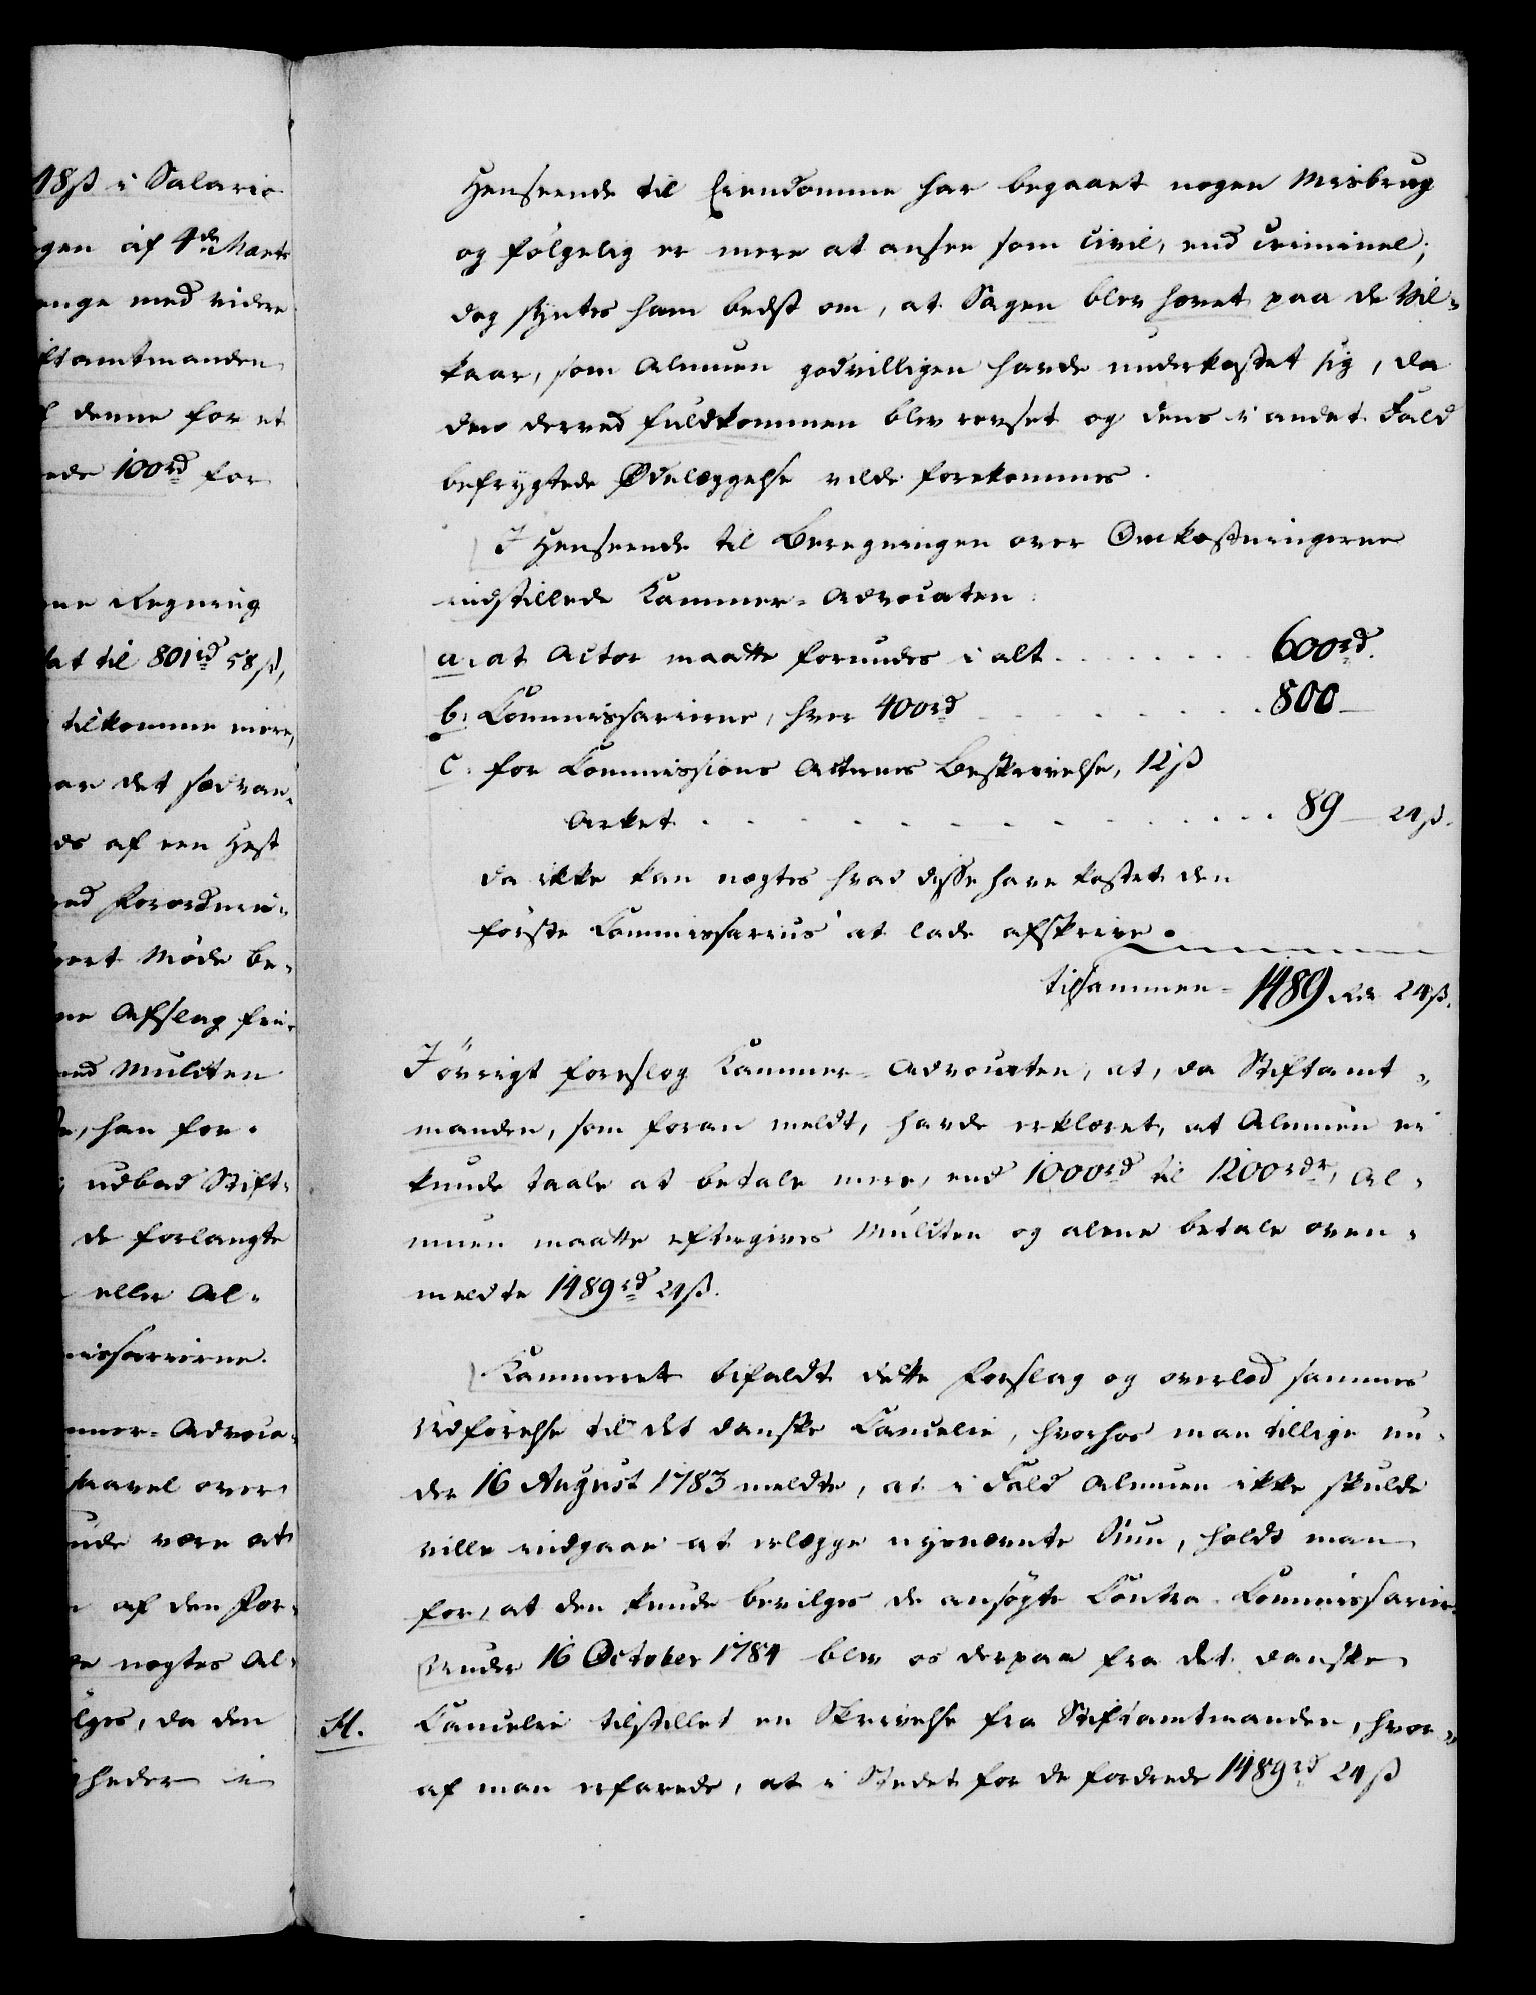 18ß i Salario
gen af 4de Marts
enge med videre
ftamtmanden
denne for et
ede 100rd for
ne Regning
lat til 801rd 58ß,
tilkomme mere,
ar det sædvan-
ds af een Hest
ed Forordnin-
ert Møde be-
ne Afslag fri-
ed Mulcten
han for-
udbad Stift-
de forlangte
eller Al-
missarierne.
mmer-Advoca-
saavel over
nde være at
af den For-
nægtes Al-
lges, da den
heder i
Henseende til Eiendomme har begaaet nogen Misbrug
og følgelig er mere at ansee som civil, end criminel;
dog syntes ham bedst om, at Sagen blev hævet paa de Vil-
kaar, som Almuen godvilligen havde underkastet sig, da
den derved fuldkommen blev revset og dens i andet Fald
befrygtede Ødelæggelse vilde forekommes.
I Henseende til Beregningen over Omkostningerne
indstillede Kammer-Advocaten:
a. at Actor maatte forundes i alt . . . . . . 600rd.
b. Commissarierne, hver 400rd . . . . . . 800 —
c. for Commissions Acternes Beskrivelse, 12ß
Arket . . . . . . . . . . . . 89 — 24ß.
da ikke kan nægtes hvad disse have kostet den
første Commissarius at lade afskrive.
tilsammen - 1489 Rd 24ß.
I øvrigt foreslog Kammer-Advocaten, at, da Stiftamt-
manden, som foran meldt, havde erklæret, at Almuen ei
kunde taale at betale mere, end 1000rd til 1200rdr, Al-
muen maatte eftergives Mulcten og alene betale oven-
meldte 1489rd 24ß.
Kammeret bifaldt dette Forslag og overlod sammes
Udførelse til det danske Cancelie, hvorhos man tillige un-
der 16 August 1783 meldte, at i Fald Almuen ikke skulde
ville indgaae at erlægge nysnævnte Sum, holdt man
for, at den kunde bevilges de ansøgte Contra-Commissarier.
Under 16 October 1784 blev os derpaa fra det danske
H. Cancelie tilstillet en Skrivelse fra Stiftamtmanden, hvor-
af man erfarede, at i Stedet for de fordrede 1489rd 24ß